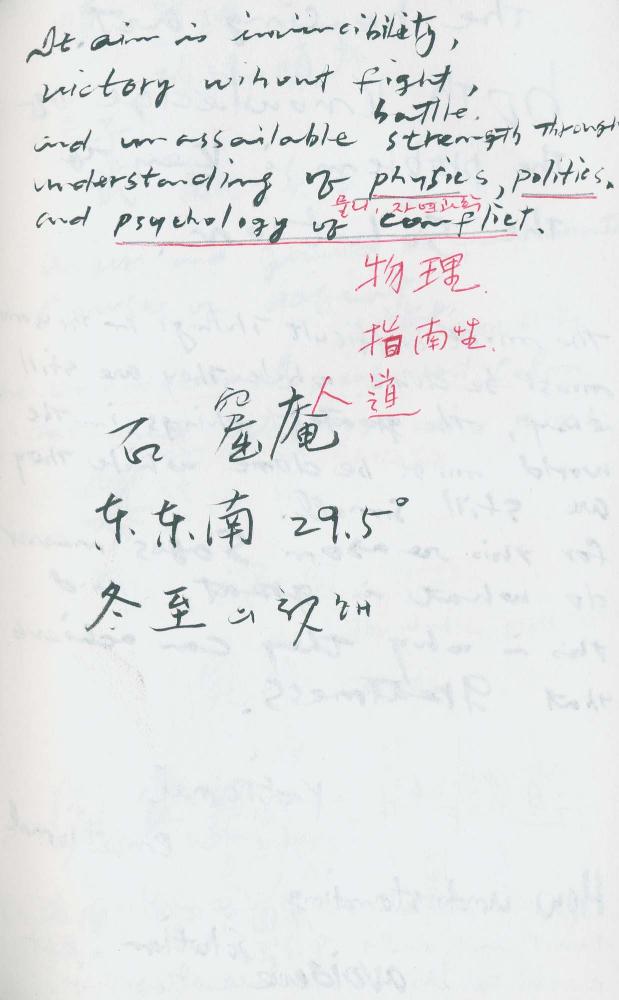 It aim is invincibility,
victory wihout fight,
battle.
and unassailable strength through
understanding of physics, politics,
물리, 자연과학
and psychology of conflict.
物理
指南性.
人道
石窟庵
东东南 29.5°
冬至의 첫해